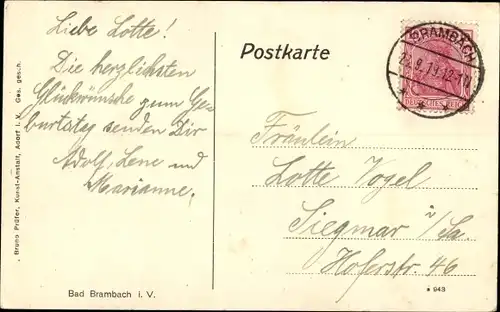 Liebe Lotte!
Die herzlichsten
Glückwünsche zum Ge-
burtstag senden Dir
Adolf, Lene und
Marianne.
Bad Brambach i. V.
Bruno Prüfer, Kunst-Anstalt, Adorf i. V. Ges. gesch.
Postkarte
BRAMBACH
DEUTSCHES REICH
Fräulein
Lotte Vogel
Siegmar i/Sa.
Hoferstr. 46
* 943